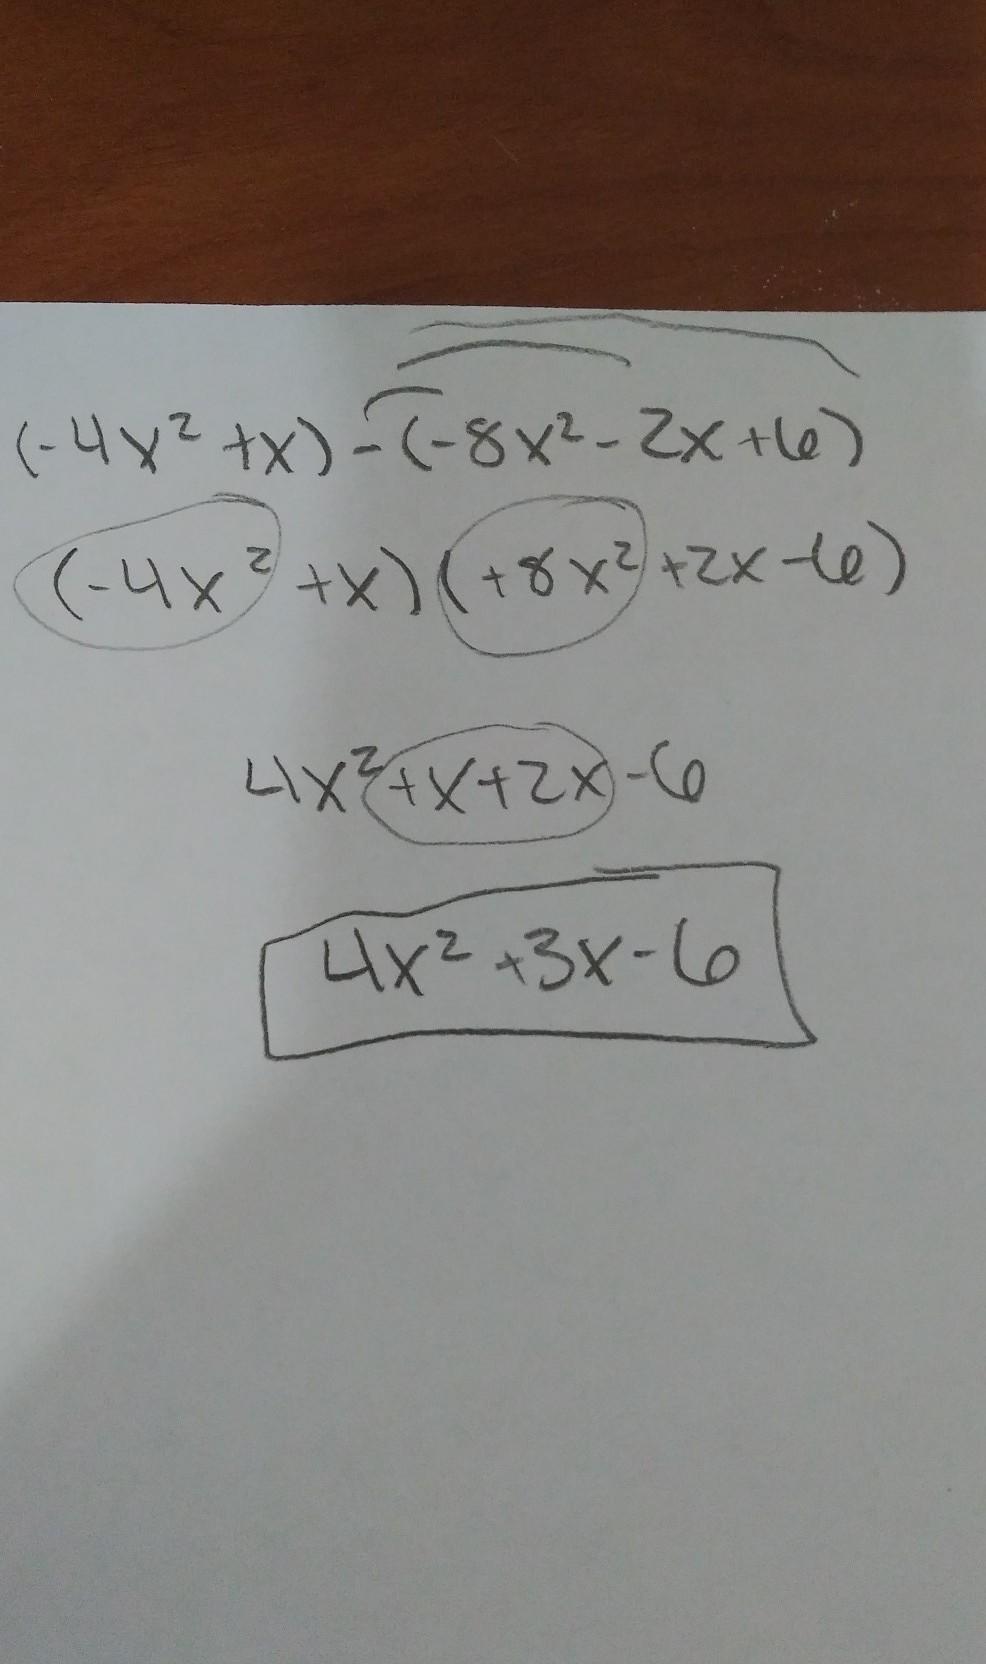 (-4x² +x) - (-8x² - 2x +6)
(-4x² +x) (+8x² +2x -6)
4x² +x+2x -6
4x² +3x - 6